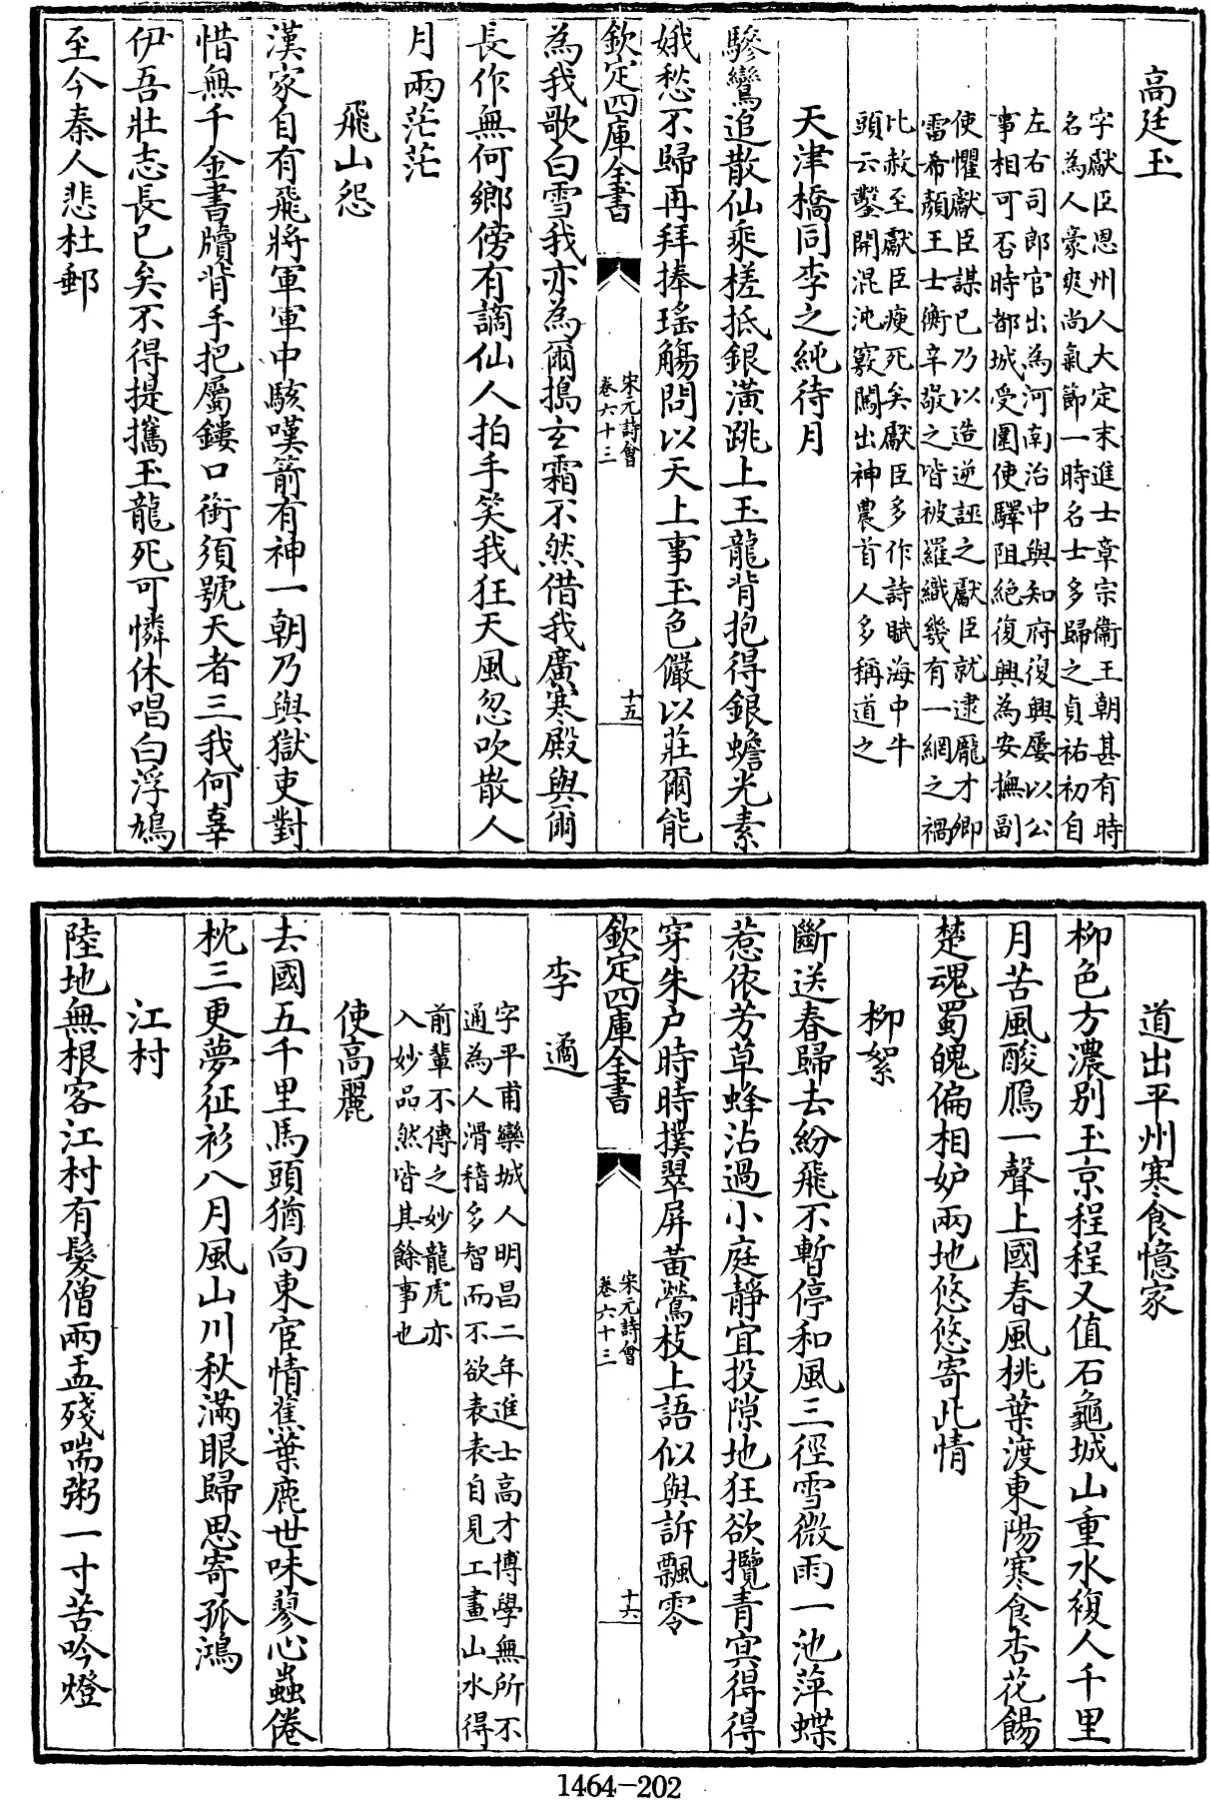 高廷玉
字獻臣恩州人大定末進士章宗衞王朝甚有時
名為人豪爽尚氣節一時名士多歸之貞祐初自
左右司郎官出為河南治中與知府復興屢以公
事相可否時都城受圍使驛阻絶復興為安撫副
使懼獻臣謀已乃以造逆誣之獻臣就逮龐才卿
雷希顏王士衡辛敬之皆被羅織幾有一網之禍
比赦至獻臣瘐死矣獻臣多作詩賦海中牛
頭云鑿開混沌竅闖出神農首人多稱道之
天津橋同李之純待月
驂鸞追散仙乘槎抵銀潢跳上玉龍背抱得銀蟾光素
娥愁不歸再拜捧瑤觴問以天上事玉色儼以莊爾能
欽定四庫全書
宋元詩會
卷六十三
十五
為我歌白雪我亦為爾搗玄霜不然借我廣寒殿與爾
長作無何鄉傍有謫仙人拍手笑我狂天風忽吹散人
月兩茫茫
飛山怨
漢家自有飛將軍軍中駭嘆箭有神一朝乃與獄吏對
惜無千金書牘背手把屬鏤口銜須號天者三我何辜
伊吾壯志長已矣不得提攜玉龍死可憐休唱白浮鳩
至今秦人悲杜郵
道出平州寒食憶家
柳色方濃别玉京程程又值石龜城山重水複人千里
月苦風酸鴈一聲上國春風桃葉渡東陽寒食杏花餳
楚魂蜀魄偏相妒兩地悠悠寄此情
柳絮
斷送春歸去紛飛不暫停和風三徑雪微雨一池萍蝶
惹依芳草蜂沾過小庭靜宜投隙地狂欲攬青冥得得
穿朱户時時撲翠屏黃鶯枝上語似與訴飄零
欽定四庫全書
宋元詩會
卷六十三
十六
李遹
字平甫欒城人明昌二年進士高才博學無所不
通為人滑稽多智而不欲表表自見工畫山水得
前輩不傳之妙龍虎亦
入妙品然皆其餘事也
使高麗
去國五千里馬頭猶向東宦情蕉葉鹿世味蓼心蟲倦
枕三更夢征衫八月風山川秋滿眼歸思寄孤鴻
江村
陸地無根客江村有髮僧兩盂殘喘粥一寸苦吟燈
1464-202